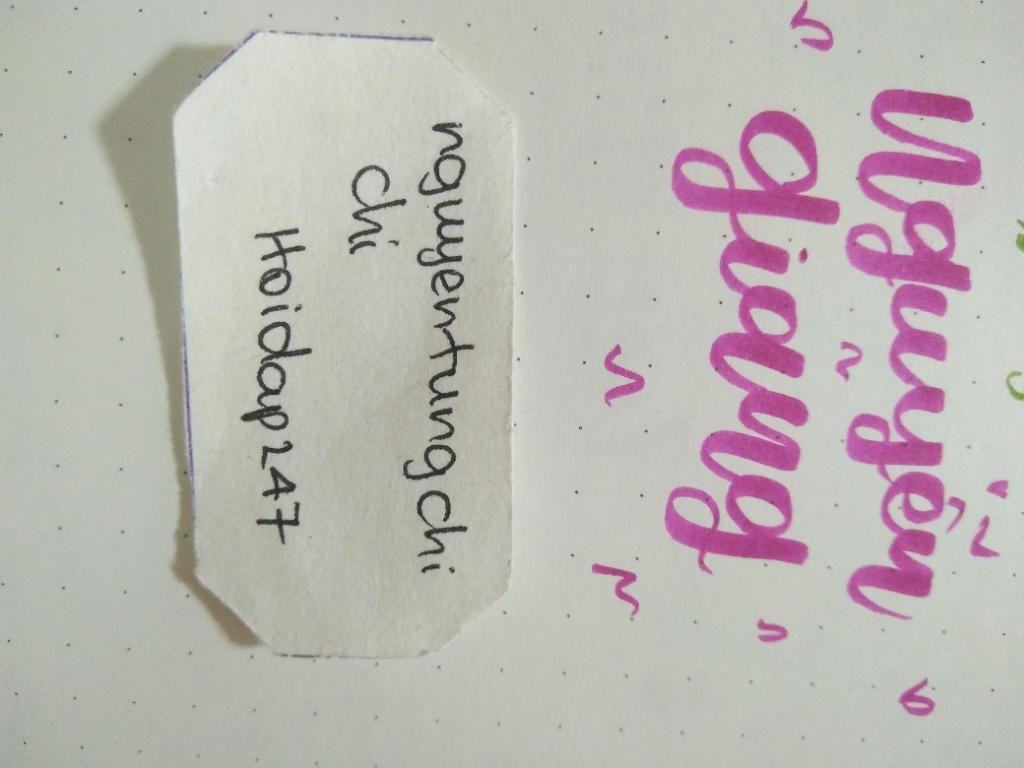 Nguyễn
giang
nguyentungchi
chi
Hoidap247